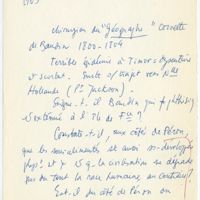 chirurgien du "Géographe" corvette
de Baudin 1800-1804
Terrible épidémie à Timor = dysenterie
et scorbut. Suite s/ trajet vers Nlle
Hollande (Pt Jackson).
Soigne-t-il Baudin qui
à l'I de Fce ?
Constate-t-il, aux côtés de Péron,
que les sous-alimentés et aussi -développés
physt et q la civilisation ne dégrade
pas du tout la race humaine au contraire ?
Est-il du côté de Péron ou